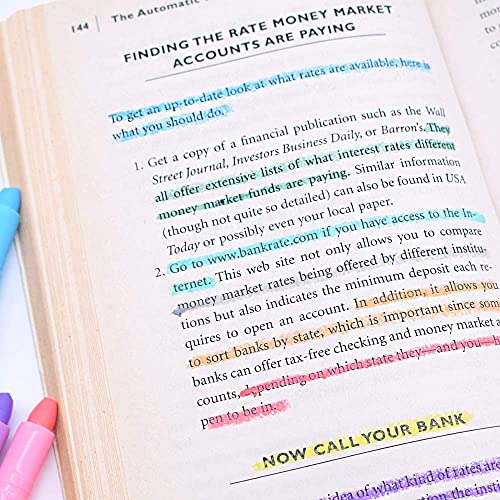 144 | The Automatic
FINDING THE RATE MONEY MARKET
ACCOUNTS ARE PAYING
To get an up-to-date look at what rates are available, here is
what you should do.
1. Get a copy of a financial publication such as the Wall
Street Journal, Investors Business Daily, or Barron's. They
all offer extensive lists of what interest rates different
money market funds are paying. Similar information
(though not quite so detailed) can also be found in USA
Today or possibly even your local paper.
2. Go to www.bankrate.com if you have access to the In-
ternet. This web site not only allows you to compare
money market rates being offered by different institu-
tions but also indicates the minimum deposit each re-
quires to open an account. In addition, it allows you
to sort banks by state, which is important since som
banks can offer tax-free checking and money market a
counts, depending on which state they—and you—h
pen to be in.
NOW CALL YOUR BANK
idea of what kind of rates are
the insti